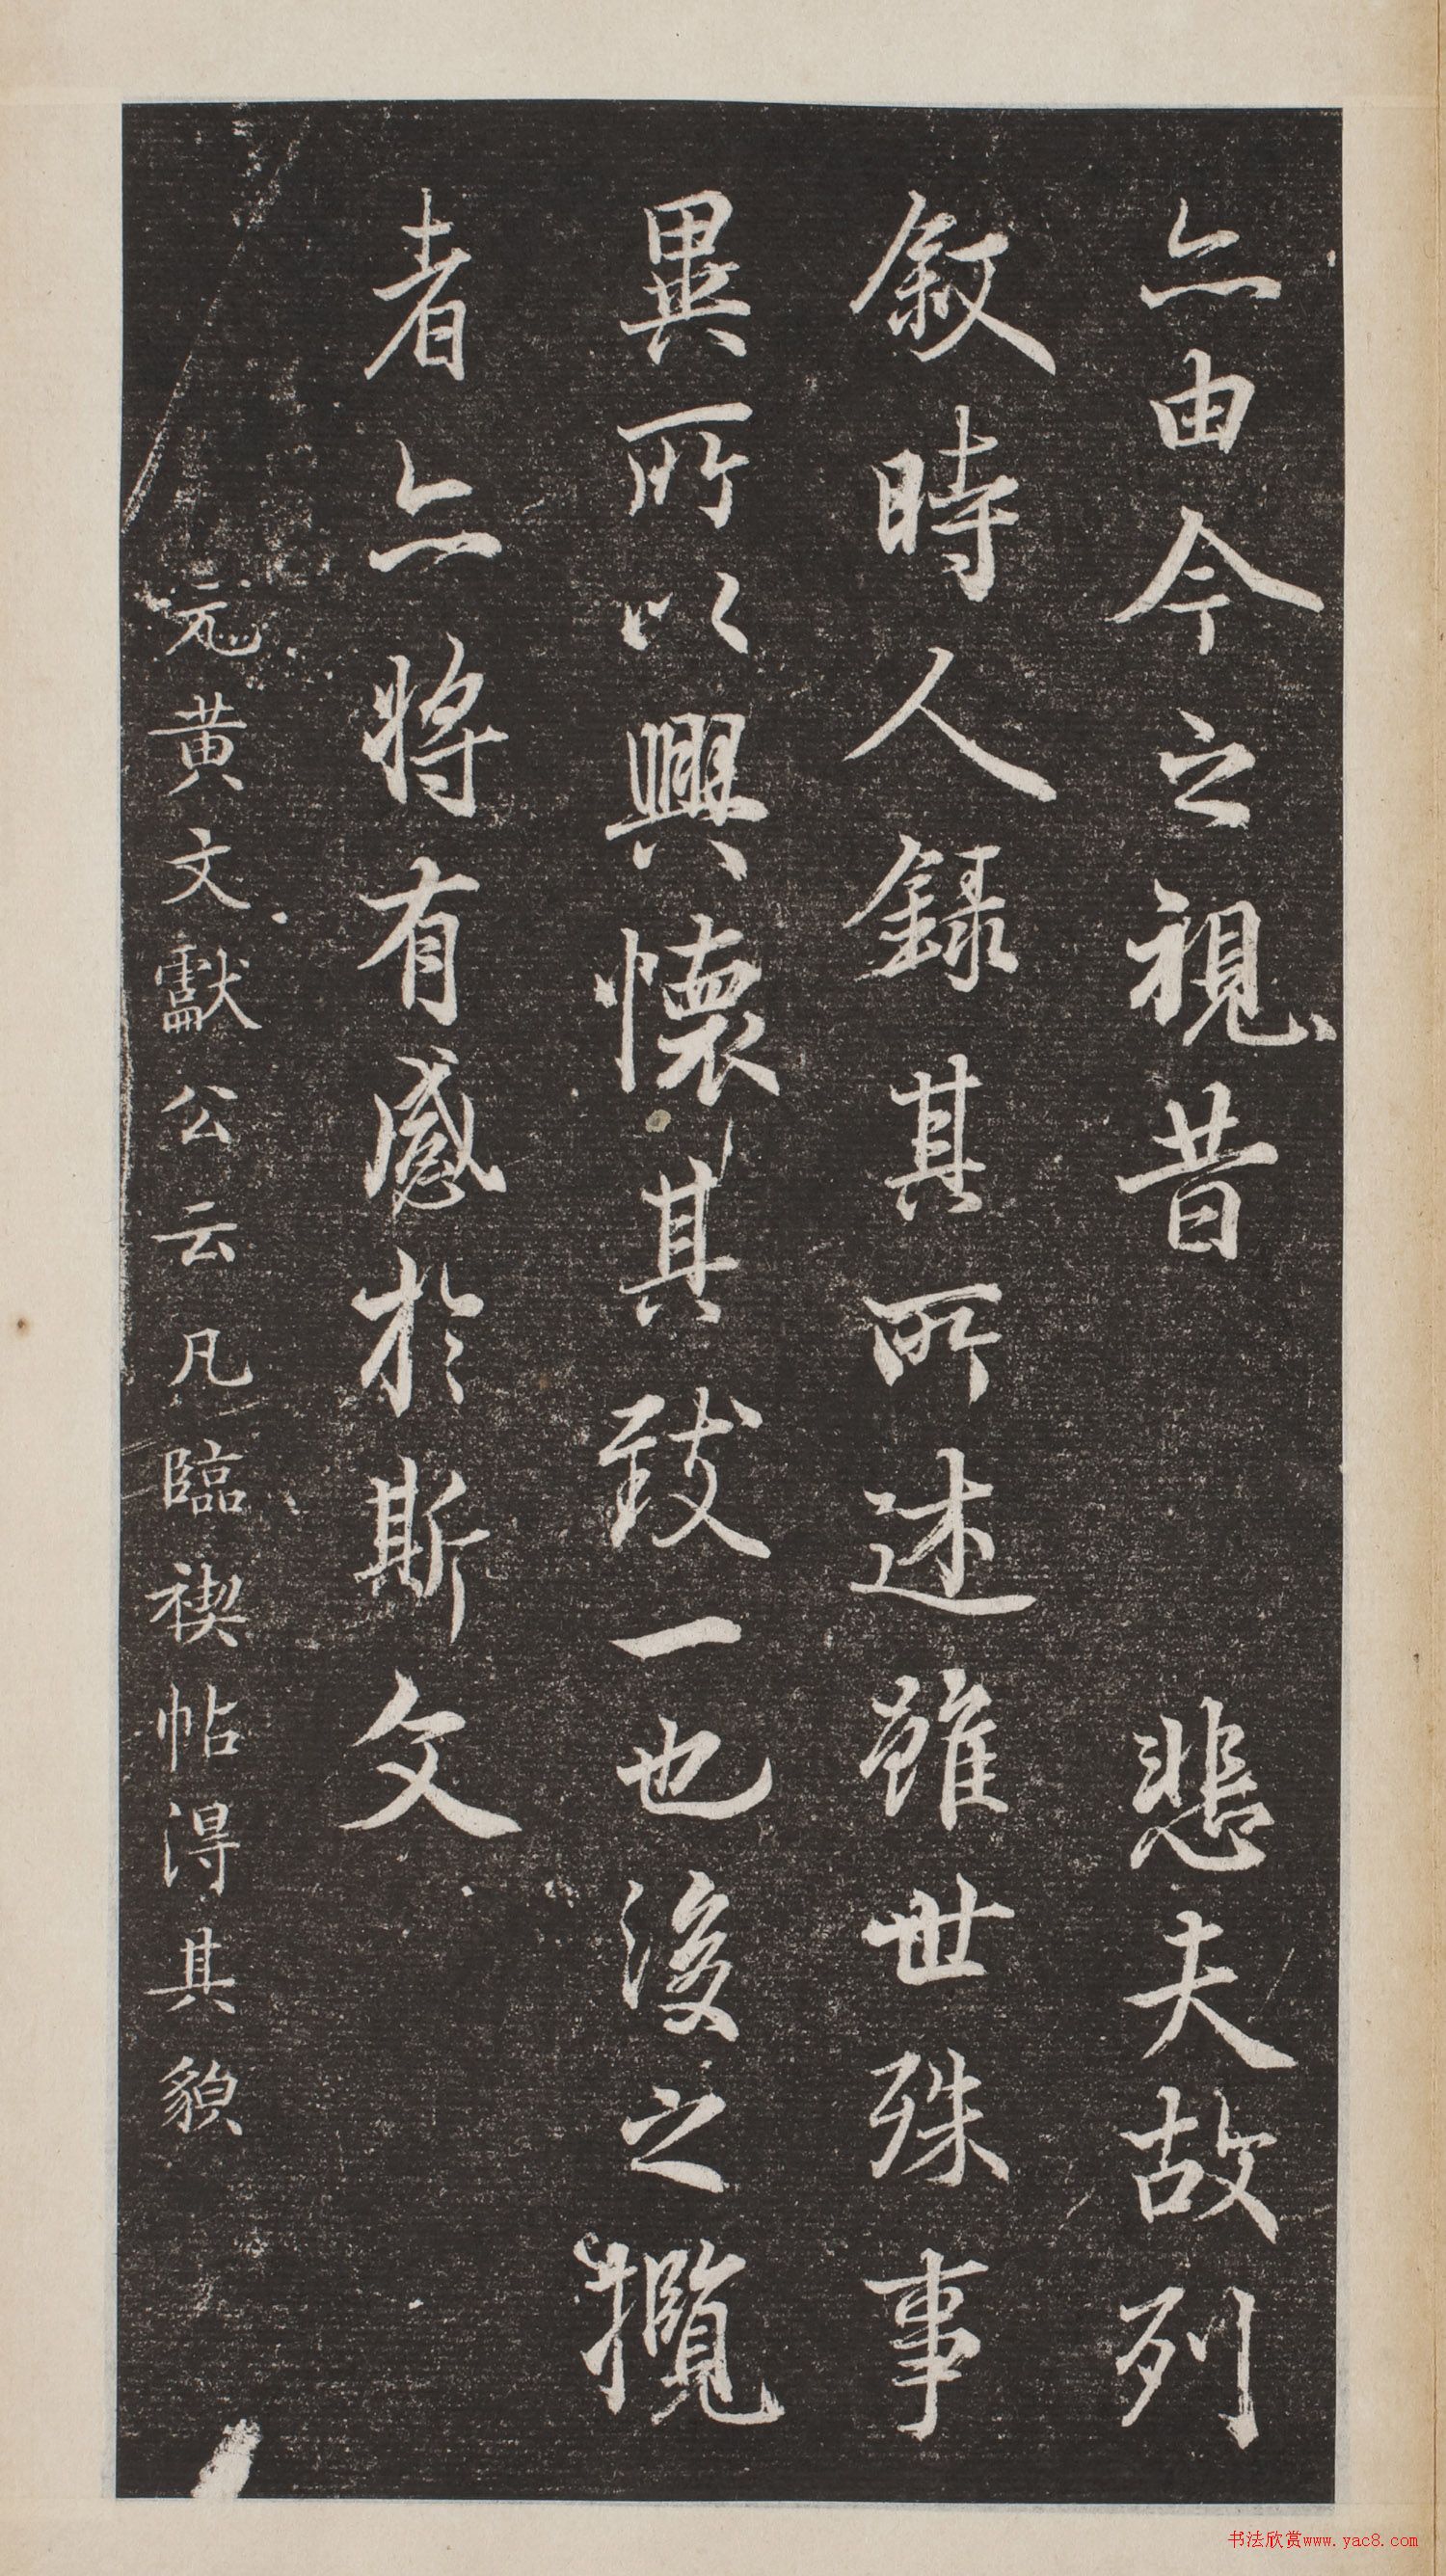 亠由今之視昔 悲夫故列
敘時人録其所述雖世殊事
異所以興懷其致一也後之攬
者亠将有感於斯文
元黄文獻公云凡臨禊帖得其貌
书法欣赏www.yac8.com